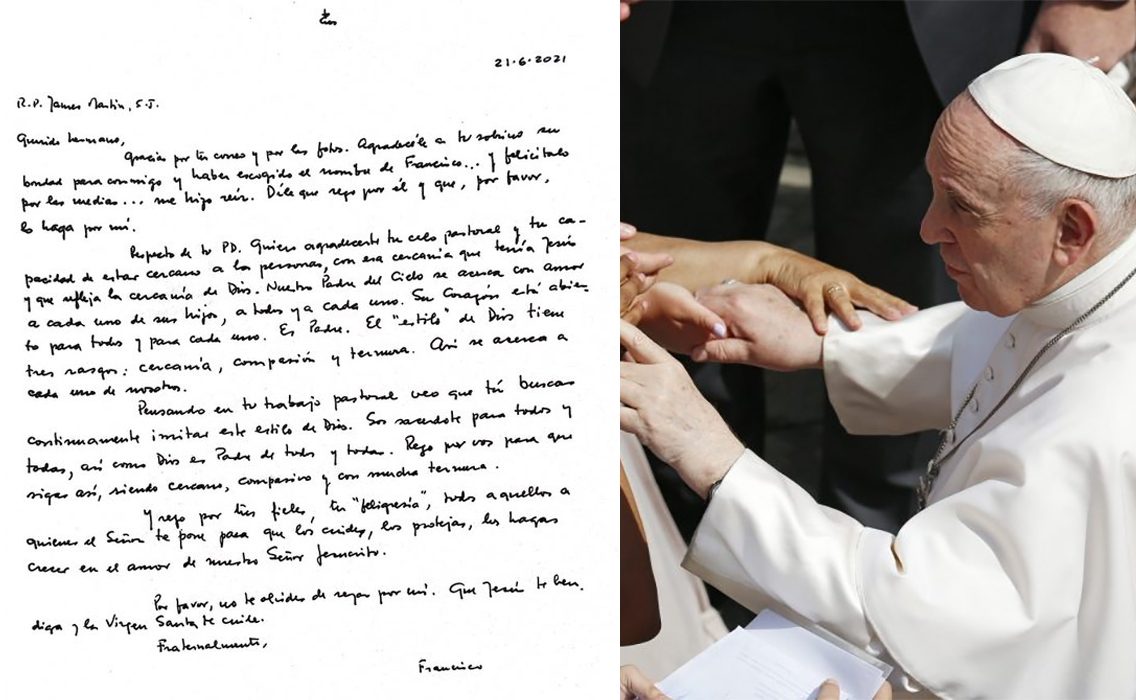 21·6·2021
R.P. James Martin, S.J.
Querido hermano,
Gracias por tu correo y por las fotos. Agradecéle a tu sobrino su
bondad para conmigo y haber escogido el nombre de Francisco... y felicítalo
por las medias... me hizo reír. Dile que rezo por él y que, por favor,
lo haga por mí.
Respecto de tu PD. Quiero agradecerte tu celo pastoral y tu ca-
pacidad de estar cercano a las personas, con esa cercanía que tenía Jesús
y que refleja la cercanía de Dios. Nuestro Padre del Cielo se acerca con amor
a cada uno de sus hijos, a todos y a cada uno. Su Corazón está abier-
to para todos y para cada uno. Es Padre. El "estilo" de Dios tiene
tres rasgos: cercanía, compasión y ternura. Así se acerca a
cada uno de nosotros.
Pensando en tu trabajo pastoral veo que tú buscas
continuamente imitar este estilo de Dios. Sos sacerdote para todos y
todas, así como Dios es Padre de todos y todas. Rezo por vos para que
sigas así, siendo cercano, compasivo y con mucha ternura.
Y rezo por tus fieles, tu "feligresía", todos aquellos a
quienes el Señor te pone para que los cuides, los protejas, los hagas
crecer en el amor de nuestro Señor Jesucristo.
Por favor, no te olvides de rezar por mí. Que Jesús te ben-
diga y la Virgen Santa te cuide.
Fraternalmente,
Francisco